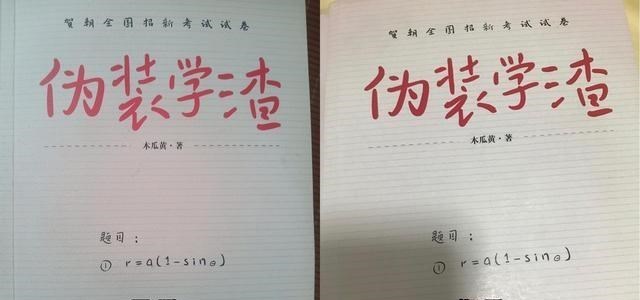 贺朝全国招新考试试卷
伪装学渣
木瓜黄·著
题目:
① r=a(1-sinθ)
贺朝全国招新考试试卷
伪装学渣
木瓜黄·著
题目:
① r=a(1-sinθ)